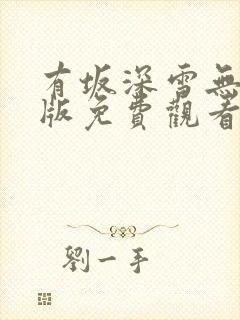 有坂深雪無
版免費觀看
劉一手